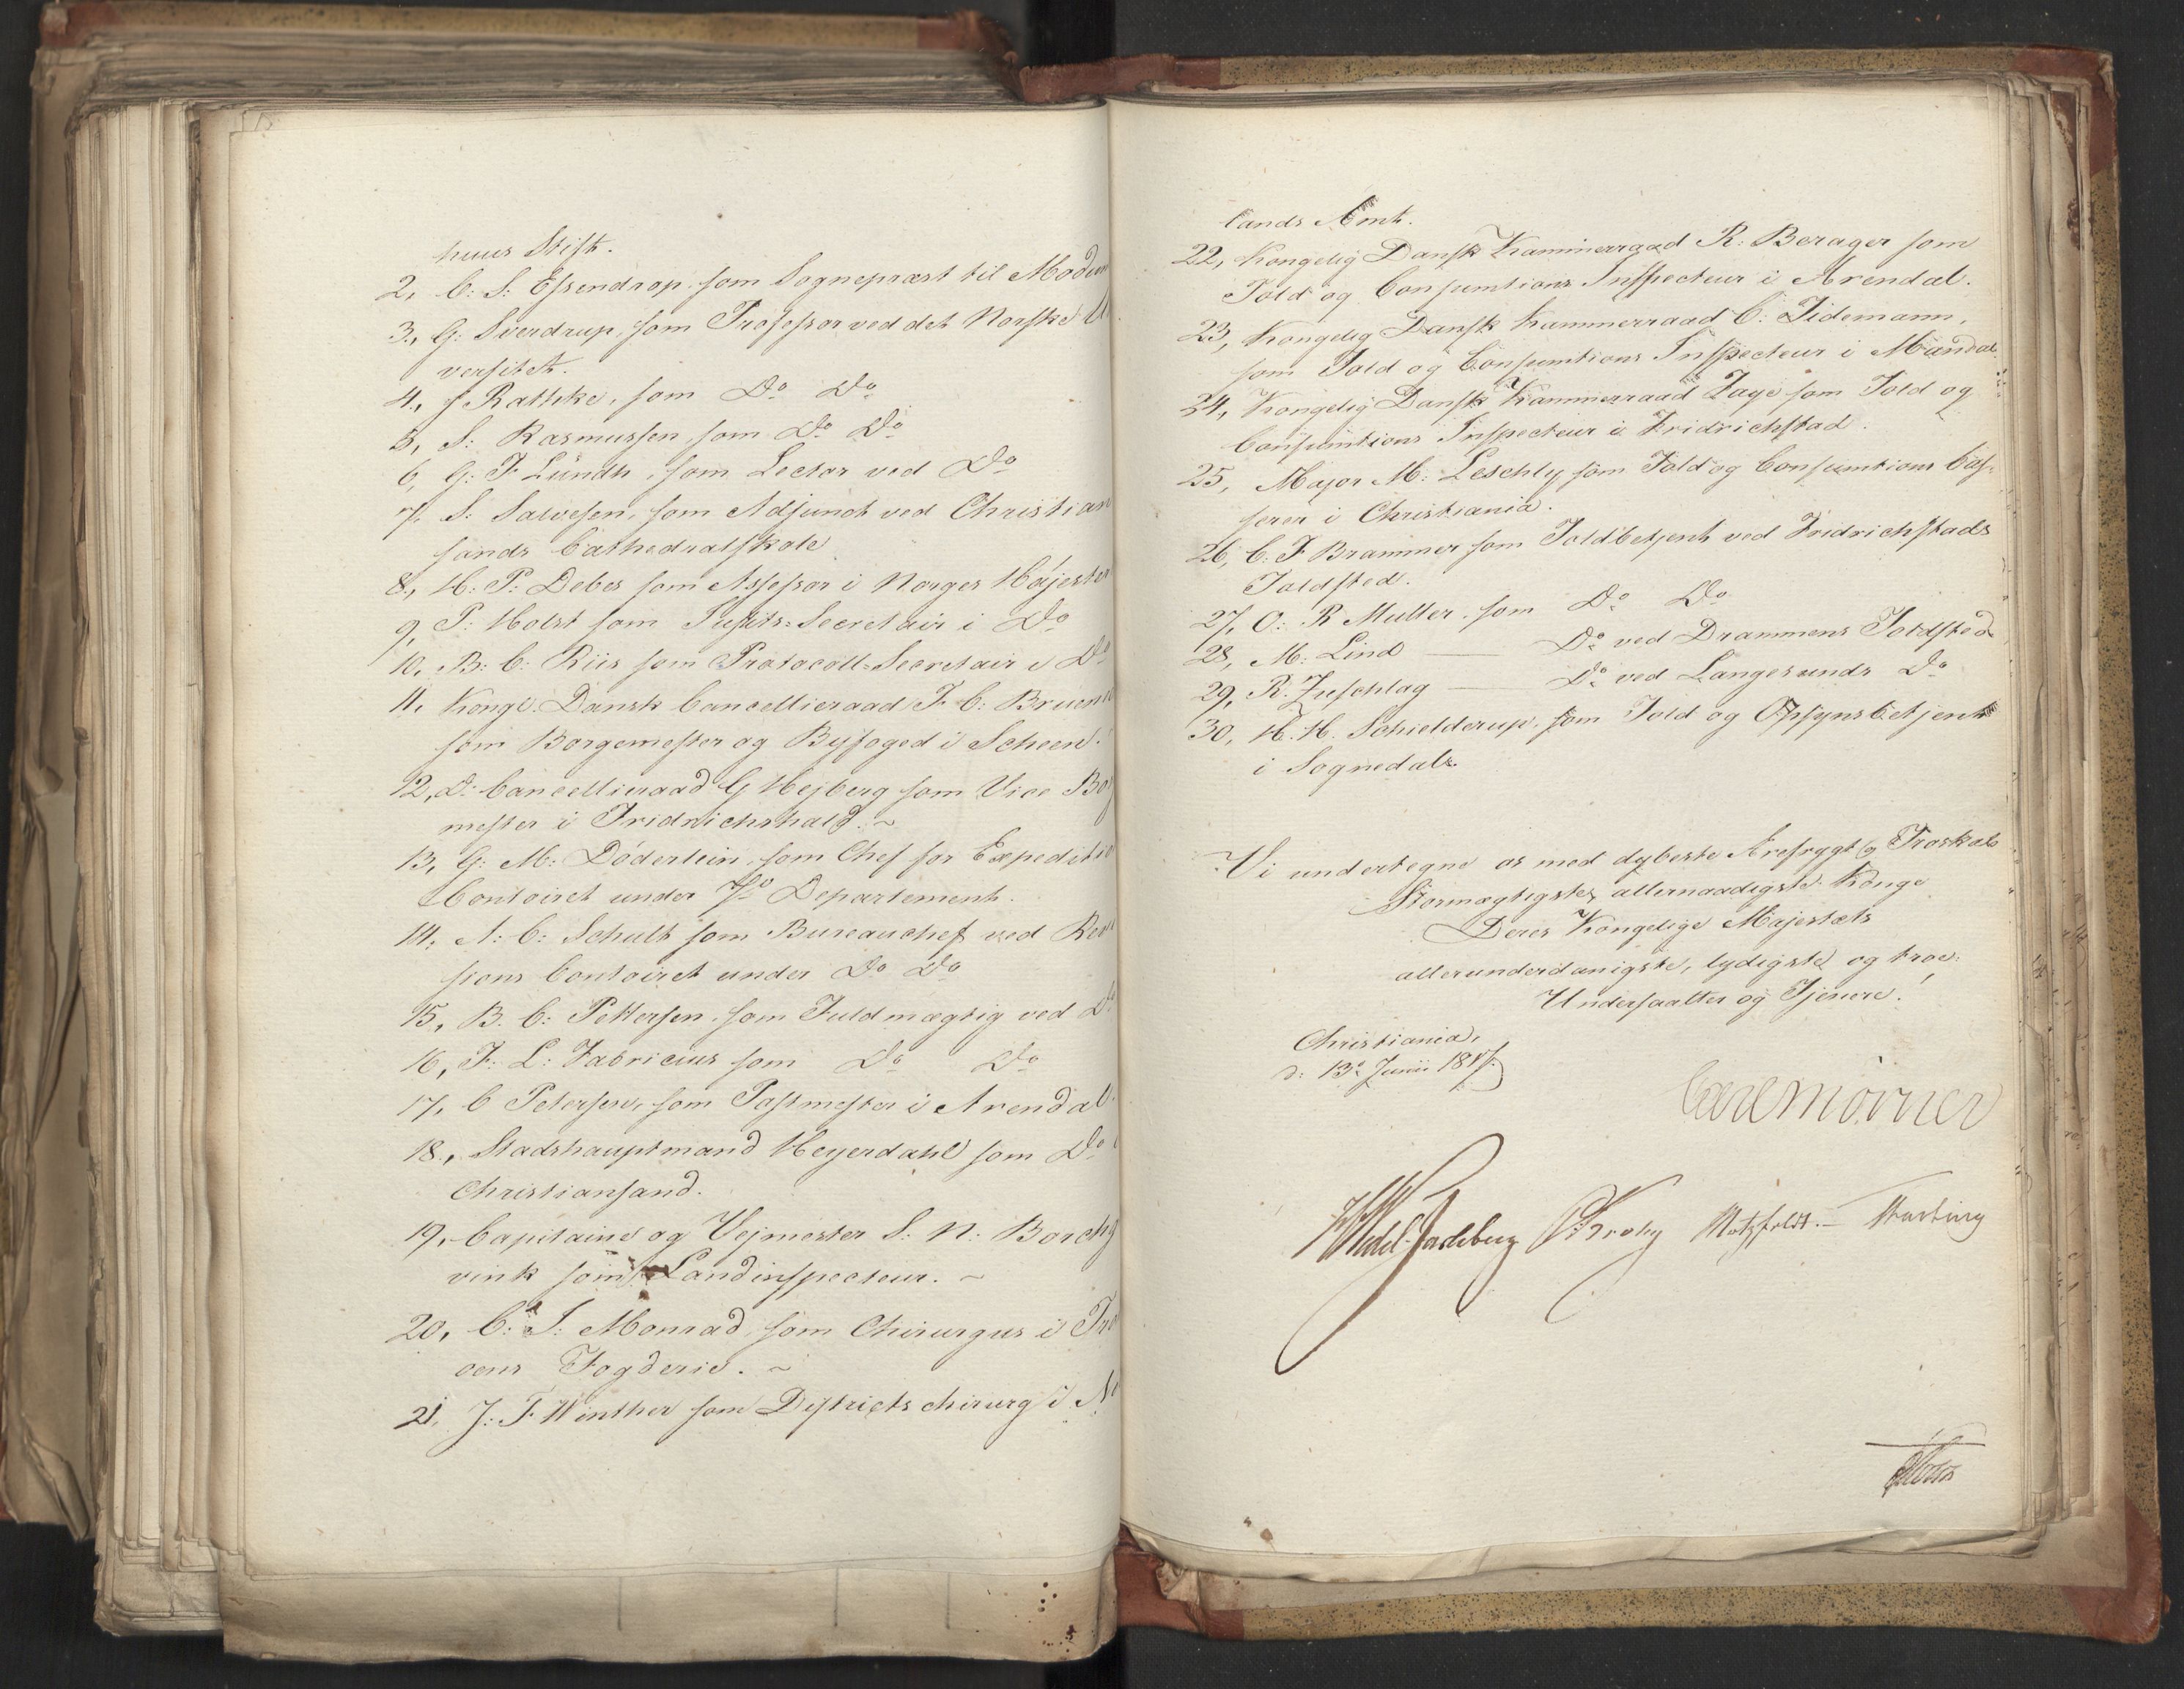 huus Stift.
2, C: S: Essendrop, som Sognepræst til Modum
3, G: Sverdrup, som Professor ved det Norske U
versitet.
4, J Rathke, som Do Do
5, S: Rasmussen som Do Do
6, G: F Lundh, som Lector ved Do
7, S: Salvesen, som Adjunct ved Christian
sands Cathedralskole
8, H: P: Debes som Assessor i Norges Høieste
9, P: Holst som Justits-Secretair i Do
10, B: C: Riis som Protocoll-Secretair i Do
11, Kongl. Dansk Cancellieraad F. C: Bruen
som Borgemester og Byfoged i Scheen.
12, Do Cancellieraad G Hejberg som Vice Bor
mester i Fridrichshald. ~
13, G: M: Døderlein, som Chef for Expeditio
Contoiret under 7de Departement.
14, A: C: Schult som Bureauchef ved Revi
sions Contoiret under Do Do
15, B. C: Pettersen, som Fuldmægtig ved Do
16, F: L: Fabricius som Do Do
17, C Petersen, som Postmester i Arendal.
18, Stadshauptmand Heyerdahl som Do
Christiansand.
19, Capitaine og Vejmester S: N: Borchg
vink som Landinspecteur. ~
20, C: J: Monrad, som Chirurgus i
oens Fogderie. ~
21, J: F Winther som Districts chirurg i No
lands Amt.
22, Kongelig Dansk Kammerraad R: Berager som
Told og Consumtions Inspecteur i Arendal.
23, Kongelig Dansk Kammerraad C: Tidemann,
som Told og Consumtions Inspecteur i Mandal.
24, Kongelig Dansk Kammerraad Faye som Told og
Consumtions Inspecteur i Fridrichstad.
25, Major M: Leschly som Told og Consumtions Cas-
serer i Christiania.
26, C. F Brammer som Toldbetjent ved Fridrichstads
Toldsted.
27, O: R Muller, som Do Do
28, M: Lind — Do ved Drammens Toldsted
29, R. Zuschlag — Do ved Langesunds Do
30, H. H. Schielderup, som Told og Opsynsbetjent
i Sognedal.
Vi undertegne os med dybeste Ærefrygt og Troskab
Stormægtigste, allernaadigste Konge
Deres Kongelige Majestæts
allerunderdanigste, lydigste og troe
Undersaatter og Tjenere!
Christiania,
d: 13de Junii 1817.
Carl Mörner
Wedel-Jarlsberg Krohg Motzfeldt. — 
Holst